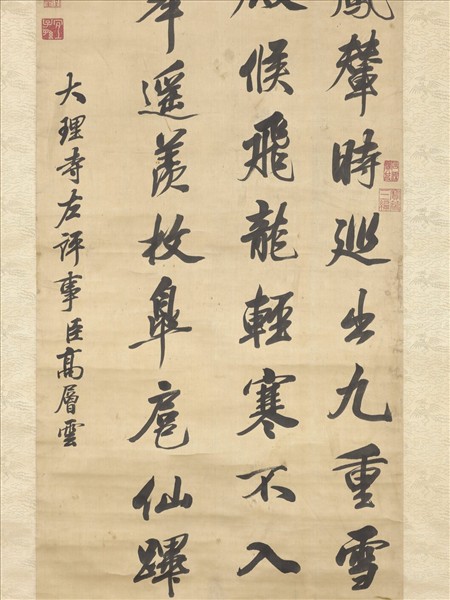 鳳輦時巡出九重雪
候飛龍輕寒不入
遥羨枚皐扈仙蹕
大理寺左評事臣高層雲